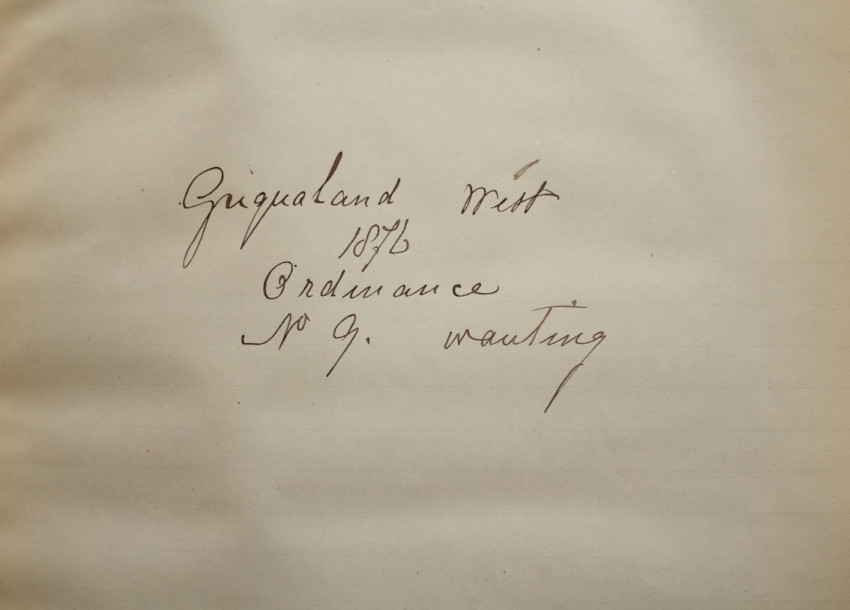 Griqualand West
1876
Ordinance
No 9. wanting